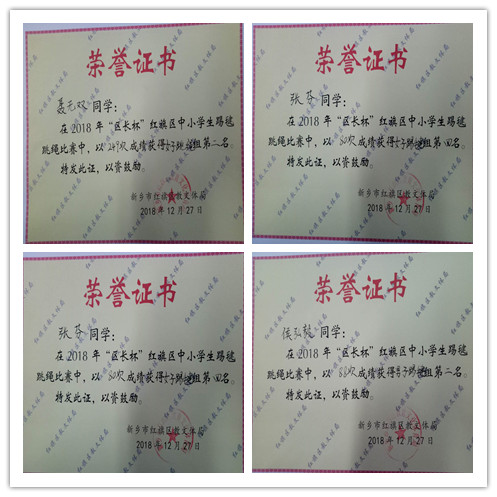 荣誉证书
聂元双 同学：
在 2018 年“区长杯”红旗区中小学生踢毽
跳绳比赛中，以 247次成绩获得女子跳绳组第二名。
特发此证，以资鼓励。
新乡市红旗区教文体局
2018 年 12 月 27 日
荣誉证书
张芬 同学：
在 2018 年“区长杯”红旗区中小学生踢毽
跳绳比赛中，以 80次成绩获得女子踢毽组第四名。
特发此证，以资鼓励。
新乡市红旗区教文体局
2018 年 12 月 27 日
荣誉证书
张芬 同学：
在 2018 年“区长杯”红旗区中小学生踢毽
跳绳比赛中，以 80次成绩获得女子踢毽组第四名。
特发此证，以资鼓励。
新乡市红旗区教文体局
2018 年 12 月 27 日
荣誉证书
侯弘毅 同学：
在 2018 年“区长杯”红旗区中小学生踢毽
跳绳比赛中，以 88次成绩获得男子踢毽组第二名。
特发此证，以资鼓励。
新乡市红旗区教文体局
2018 年 12 月 27 日